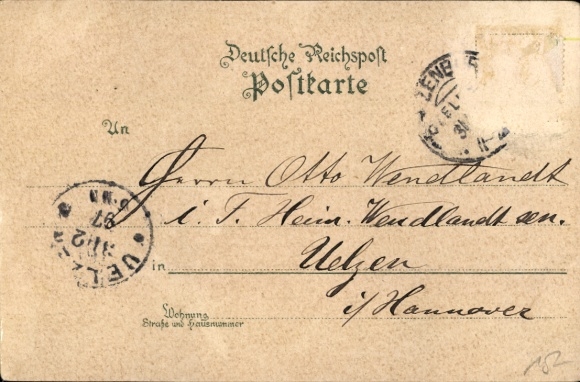 Deutsche Reichspost
Postkarte
An
Herrn Otto Wendlandt
i. F. Heinr. Wendlandt sen.
in Uelzen
i/ Hannover
Wohnung
Straße und Hausnummer
UELZEN
31 12
97
152